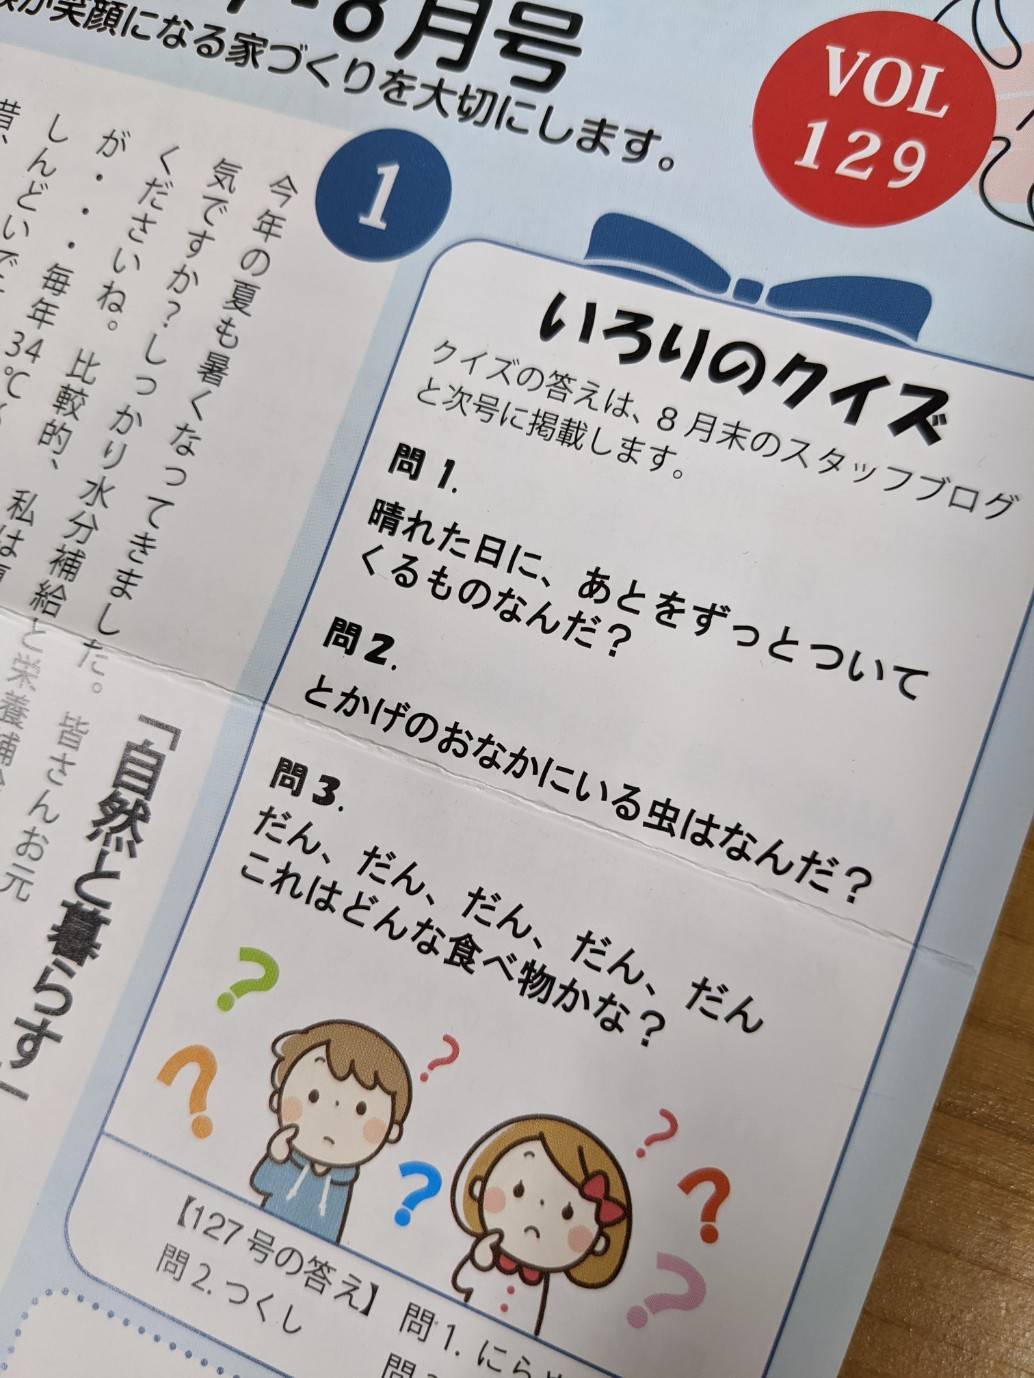 8月号
笑顔になる家づくりを大切にします。
VOL
129
1
いろりのクイズ
クイズの答えは、8月末のスタッフブログ
と次号に掲載します。
問1.
晴れた日に、あとをずっとついて
くるものなんだ?
問2.
とかげのおなかにいる虫はなんだ?
問3.
だん、だん、だん、だん、だん
これはどんな食べ物かな?
【127号の答え】 問1. にら
問2. つくし
「自然と暮らす」
今年の夏も暑くなってきました。皆さんお元
気ですか?しっかり水分補給と栄養補
くださいね。比較的、私は
が・・・毎年34℃
しんどい
昔、